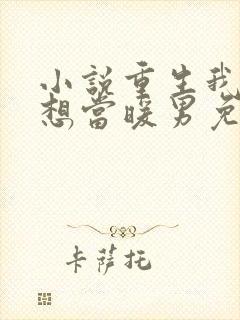 小説重生我
想當暖男免
卡薩托